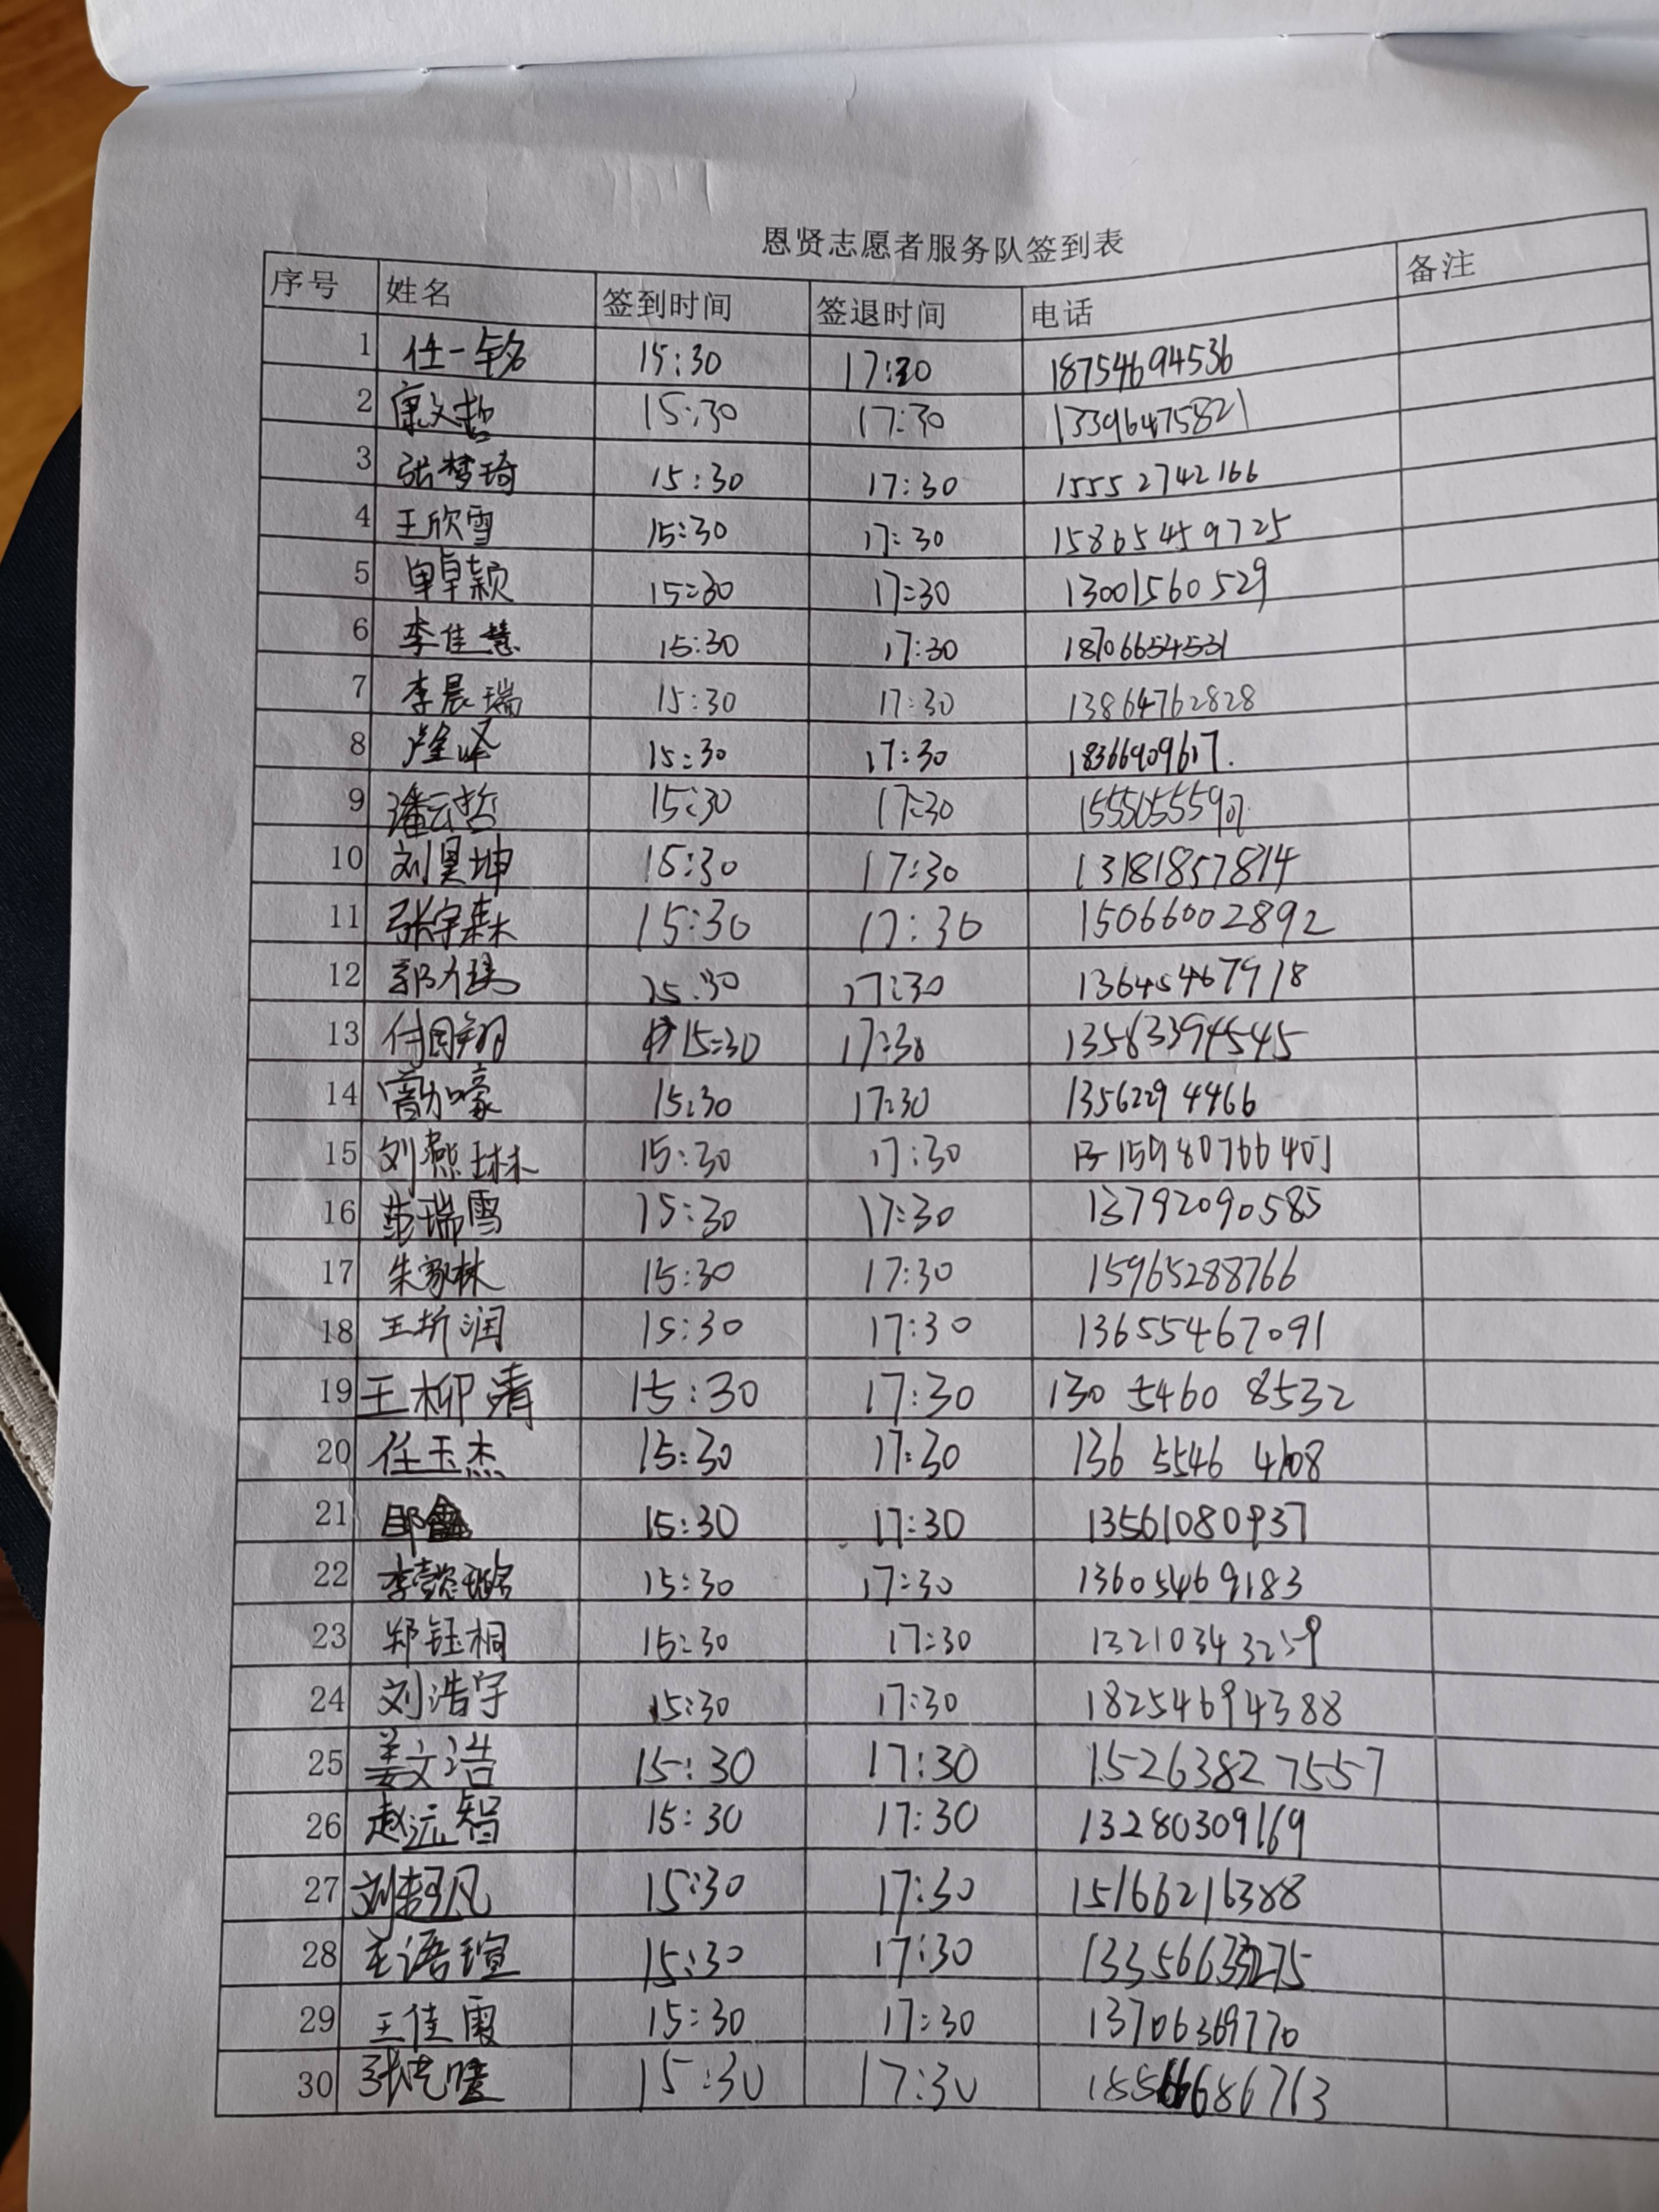 恩贤志愿者服务队签到表
序号 姓名 签到时间 签退时间 电话 备注
1 任一铭 15:30 17:30 18754694536
2 康文哲 15:30 17:30 13396475821
3 张梦琦 15:30 17:30 15552742166
4 王欣雪 15:30 17:30 15865459725
5 单卓颖 15:30 17:30 13001560529
6 李佳慧 15:30 17:30 18706654531
7 李晨瑞 15:30 17:30 13864762828
8 15:30 17:30 18366909617.
9 潘云哲 15:30 17:30
10 刘昊坤 15:30 17:30 13181857814
11 张宇森 15:30 17:30 15066002892
12 15:30 17:30 13645467918
13 15:30 17:30 13563394545
14 15:30 17:30 13562294466
15 刘燕琳 15:30 17:30 15980766401
16 范瑞雪 15:30 17:30 13792090585
17 朱家林 15:30 17:30 15965288766
18 王圻润 15:30 17:30 13655467091
19 王柳清 15:30 17:30 130 5460 8532
20 任玉杰 15:30 17:30 136 5546 4108
21 15:30 17:30 13561080937
22 李懿璐 15:30 17:30 13605469183
23 郑钰桐 15:30 17:30 13210343259
24 刘浩宇 15:30 17:30 18254694388
25 姜文浩 15:30 17:30 15263827557
26 赵远智 15:30 17:30 13280309169
27 15:30 17:30 15166216388
28 王语瑄 15:30 17:30
29 王佳霞 15:30 17:30 13706369770
30 15:30 17:30